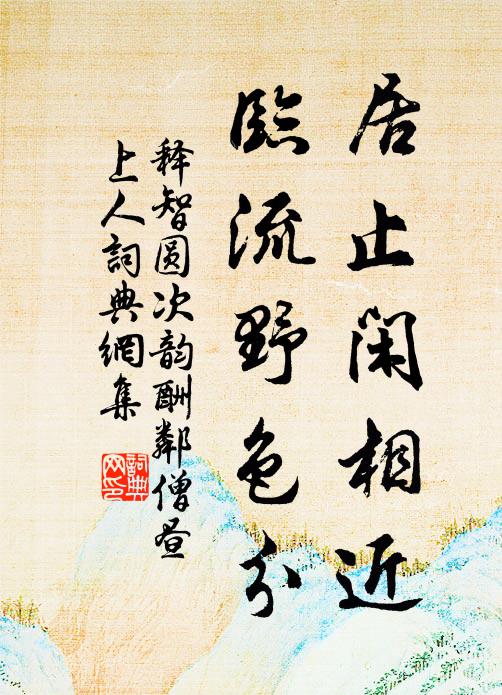 居止閑相近
臨流野色分
释智圆次韵酬鄰僧昼
上人詞典網集
詞典
网印